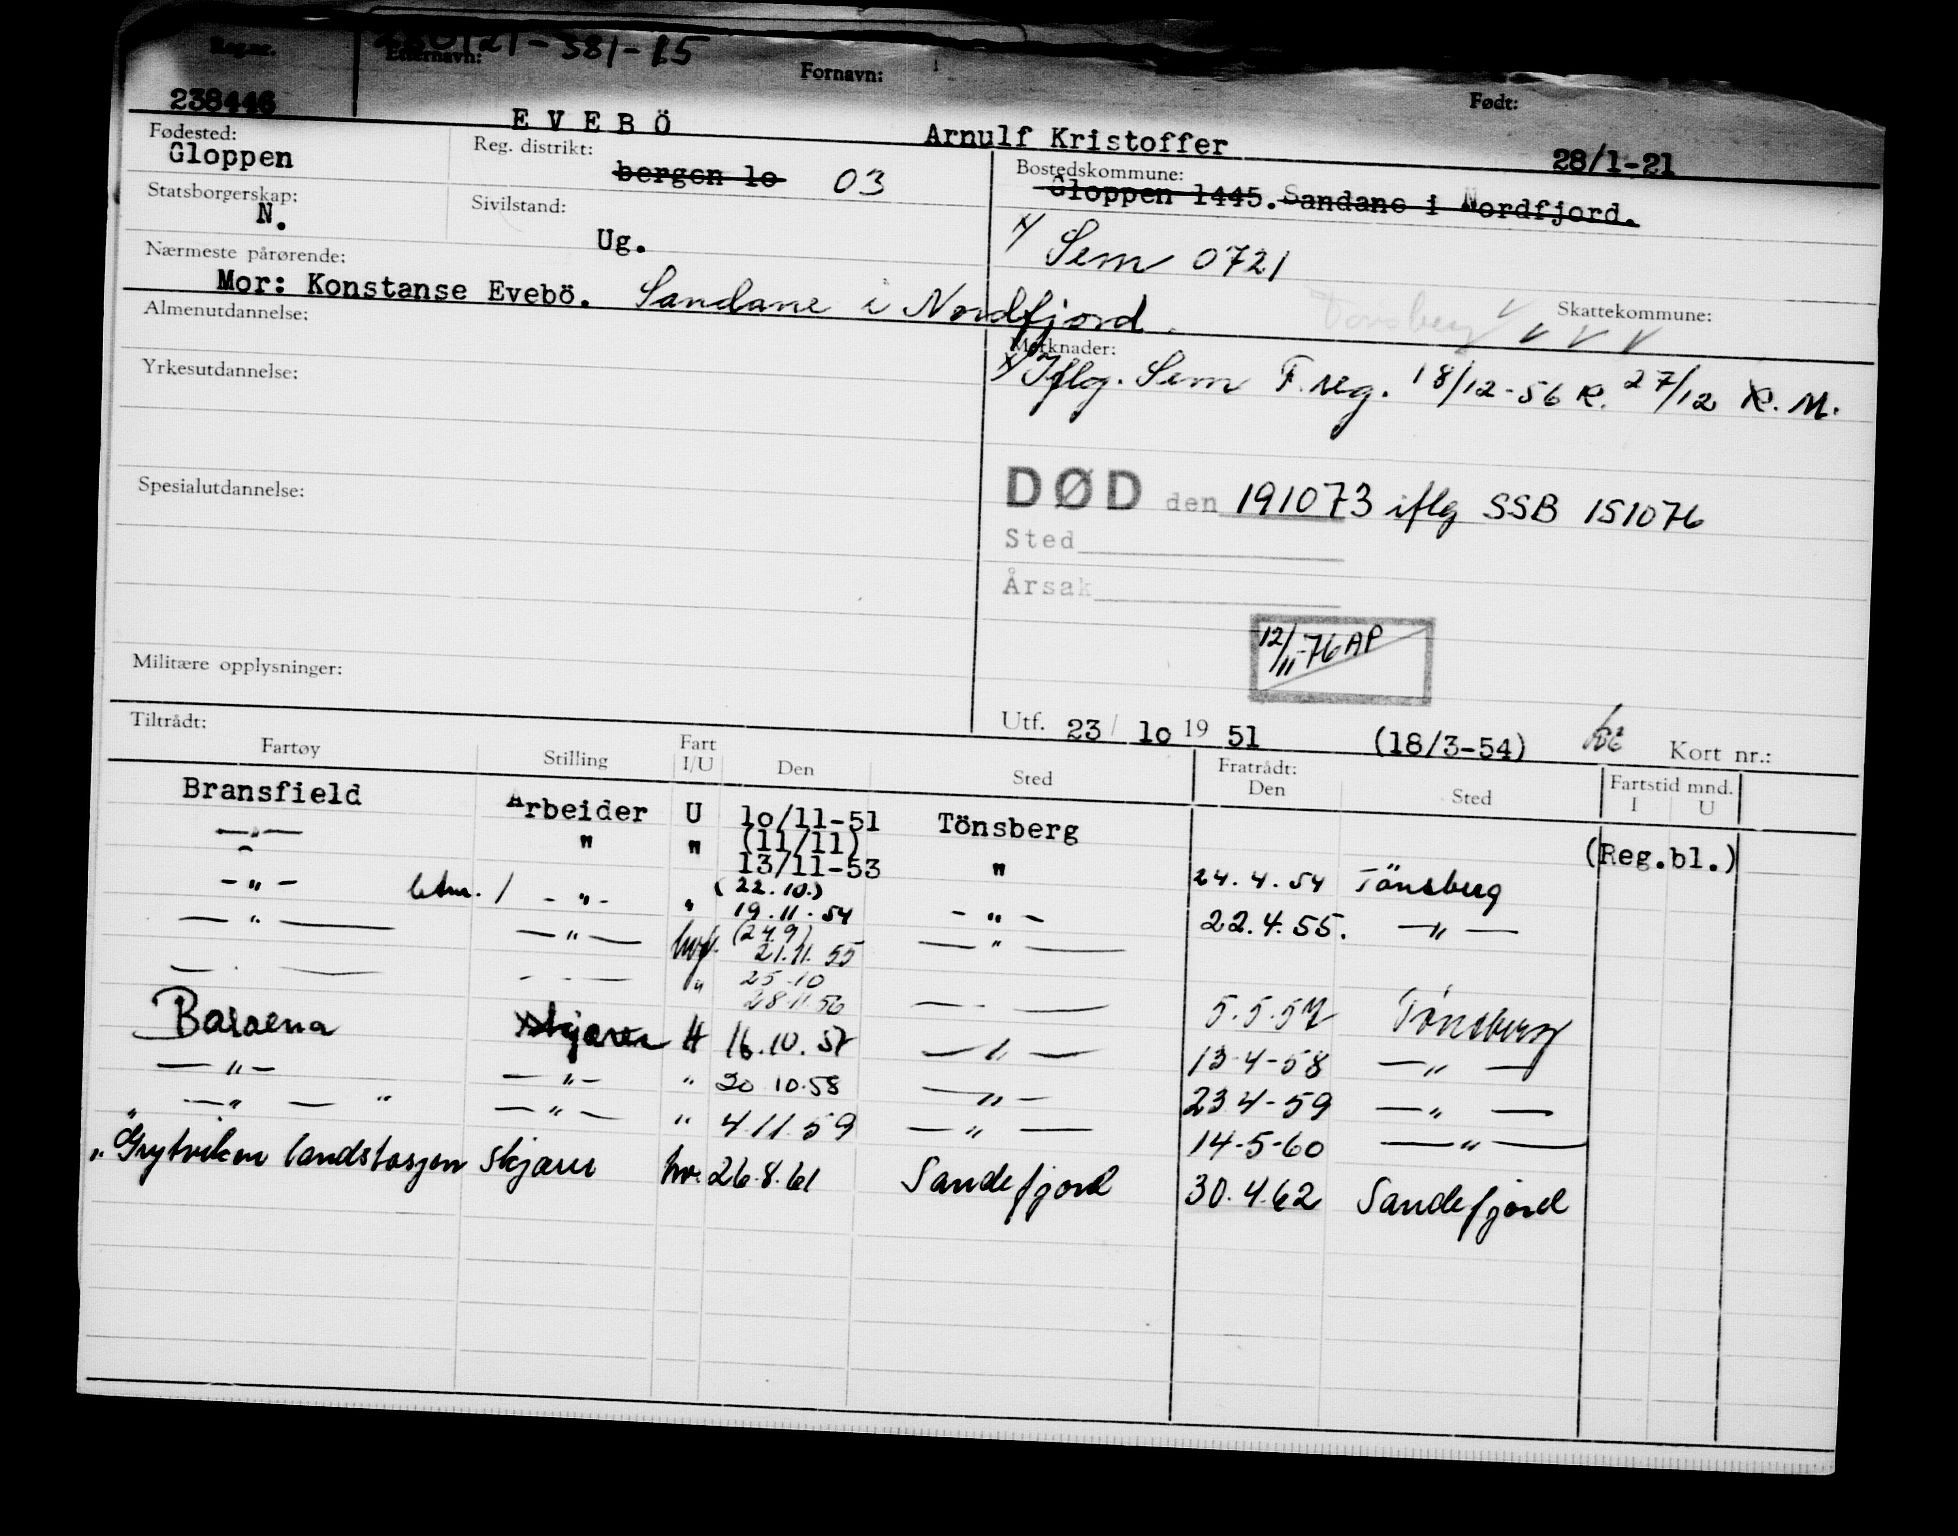 Reg.nr. Etternavn: Fornavn: Født:
238446 EVEBÖ Arnulf Kristoffer 28/1-21
Fødested: Reg. distrikt: Bostedskommune:
Gloppen bergen lo 03 Gloppen 1445. Sandane i Nordfjord.
Statsborgerskap: Sivilstand:
N. Ug. Sem 0721
Nærmeste pårørende:
Mor: Konstanse Evebö. Sandane i Nordfjord.
Tönsberg Skattekommune:
Almenutdannelse: Merknader:
Iflg. Sem F.reg. 18/12-56 R. 27/12 R. M.
Yrkesutdannelse:
Spesialutdannelse:
DØD den 191073 iflg SSB 151076
Sted
Årsak
12/11-76 AP
Militære opplysninger:
Utf. 23/ lo 19 51 (18/3-54) Kort nr.:
Tiltrådt: Fratrådt: Fartstid mnd.
Fartøy Stilling Fart I/U Den Sted Den Sted I U
Bransfield Arbeider U lo/11-51 Tönsberg (Reg.bl.)
—"— " " (11/11) 13/11-53 " 24.4.54 Tönsberg
-"- -"- " (22.10.) 19.11.54 -"- 22.4.55. —"—
—"— —"— hvf. (24.9) 21.11.55 —"—
— — - - - " 25.10 28.11.56 — — 5.5.57 Tönsberg
Balaena skjærer H 16.10.57 —"— 13-4-58 —"—
—"— —"— " 20 10.58 —"— 23 4-59 —"—
—"— " —"— " 4 11.59 —"— 14-5-60 —"—
" Grytviken landstasjon skjærer hv. 26.8.61 Sandefjord 30.4.62 Sandefjord